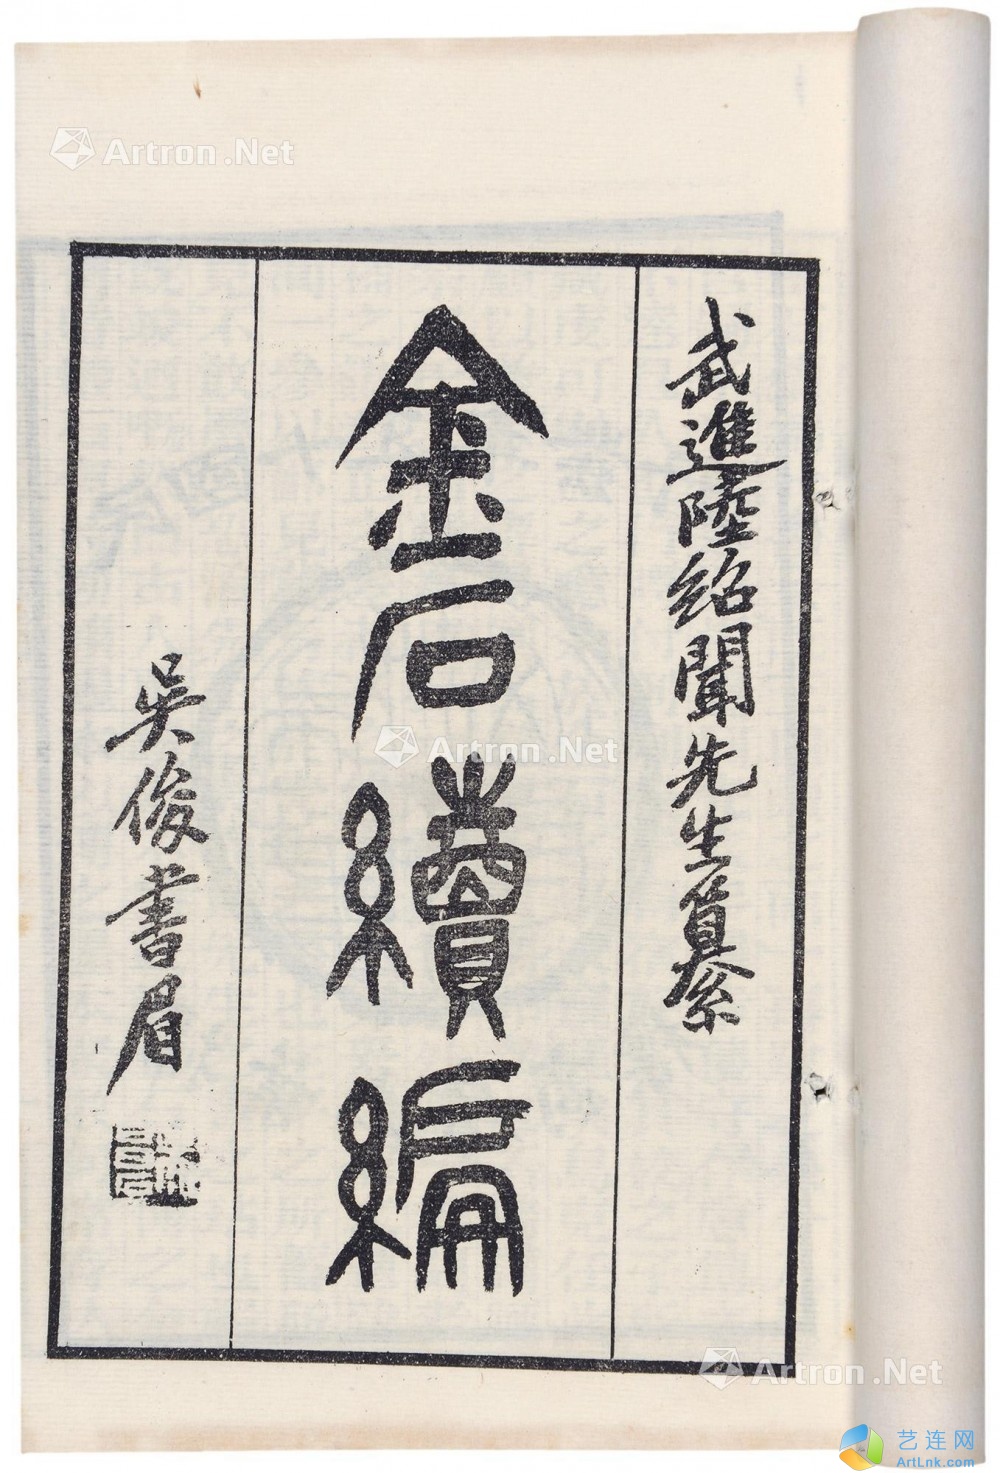 武進陸紹聞先生纂
金石續編
吳俊書眉
Artron.Net
Artron.Net
Artron.Net
艺连网
ArtLnk.com